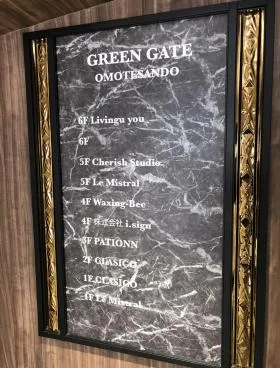 GREEN GATE
OMOTESANDO
6F Livingu you
6F
5F Cherish Studio
5F Le Mistral
4F Waxing-Bee
4F 株式会社 i.sign
3F PATIONN
2F CLASICO
1F CLASICO
1F Le Mistral